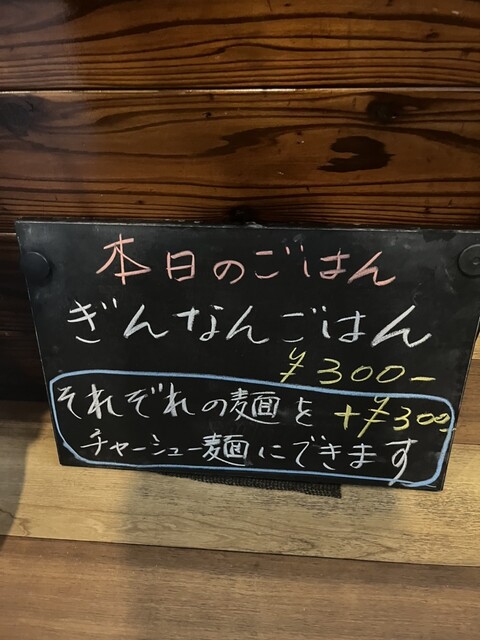 本日のごはん
ぎんなんごはん
¥300-
それぞれの麺を +¥300-
チャーシュー麺にできます